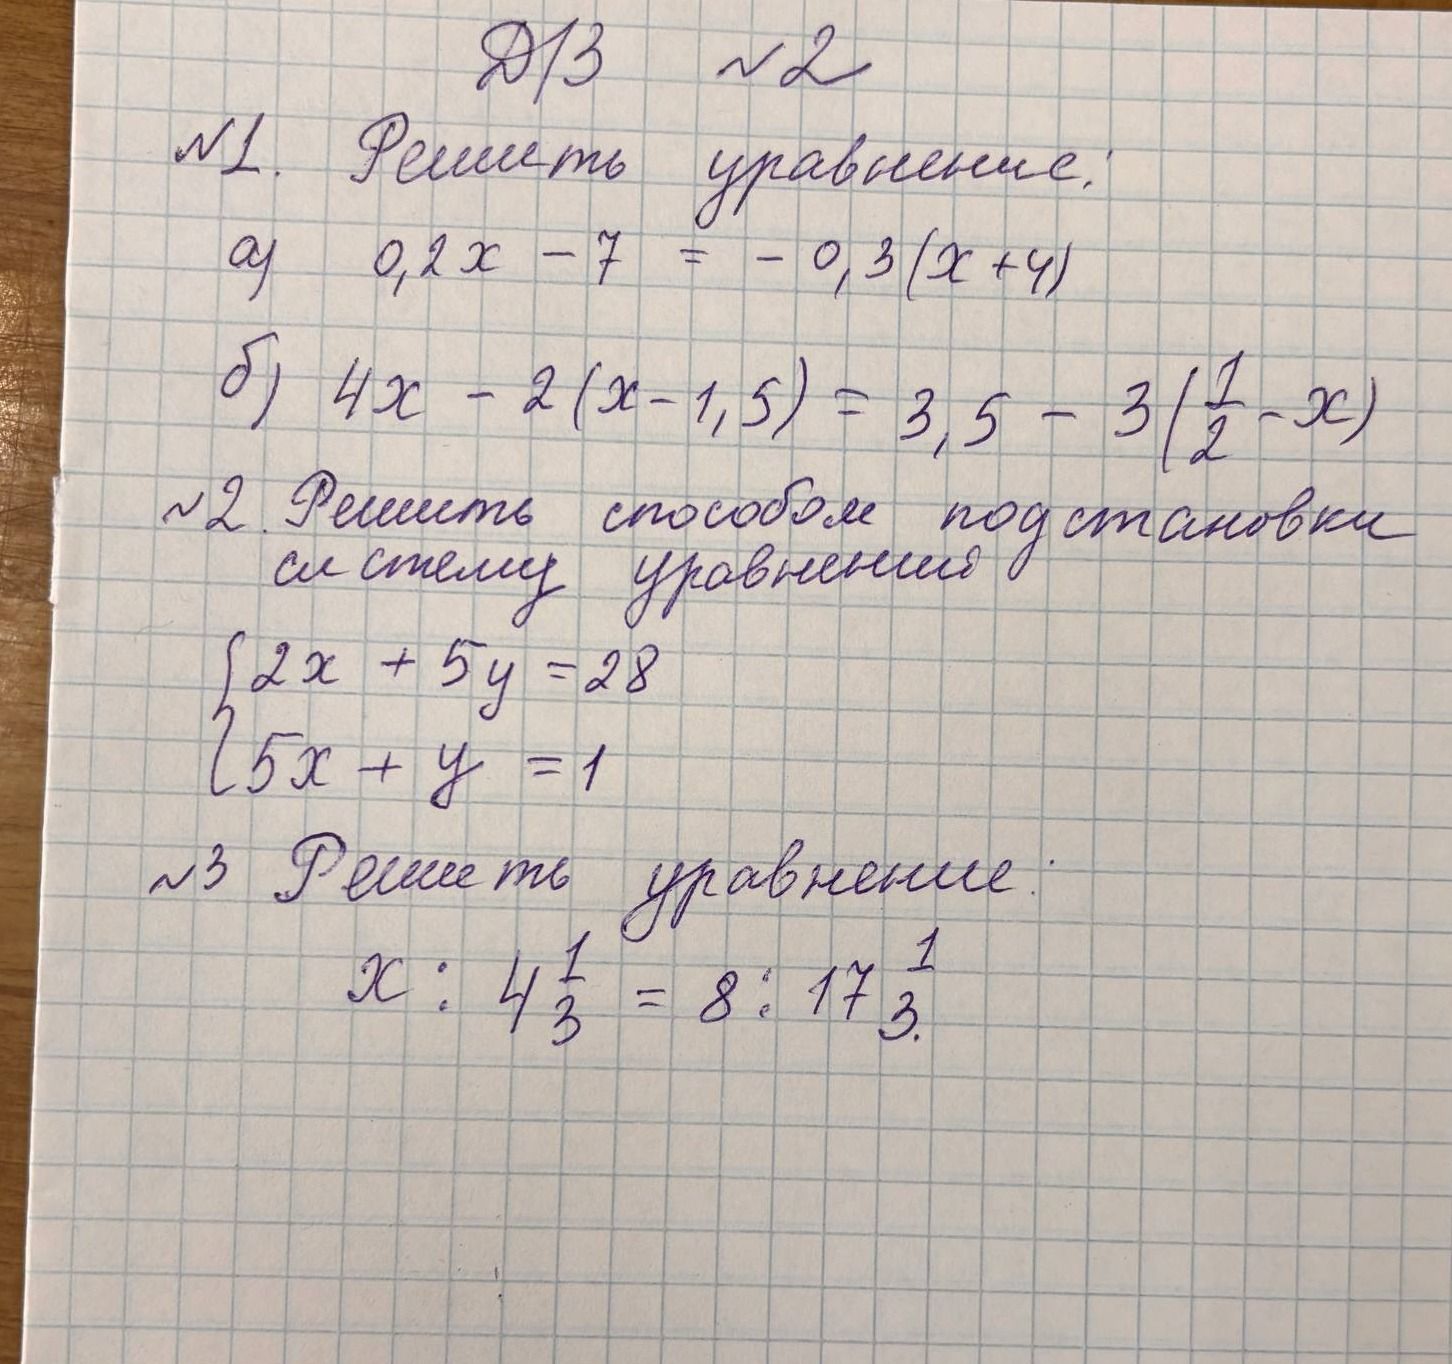 Д/З №2
№1. Решить уравнение:
а) 0,2x - 7 = - 0,3(x+4)
б) 4x - 2(x-1,5) = 3,5 - 3(1/2 - x)
№2. Решить способом подстановки
систему уравнений
{2x + 5y = 28
{5x + y = 1
№3 Решить уравнение:
x : 4 1/3 = 8 : 17 1/3.